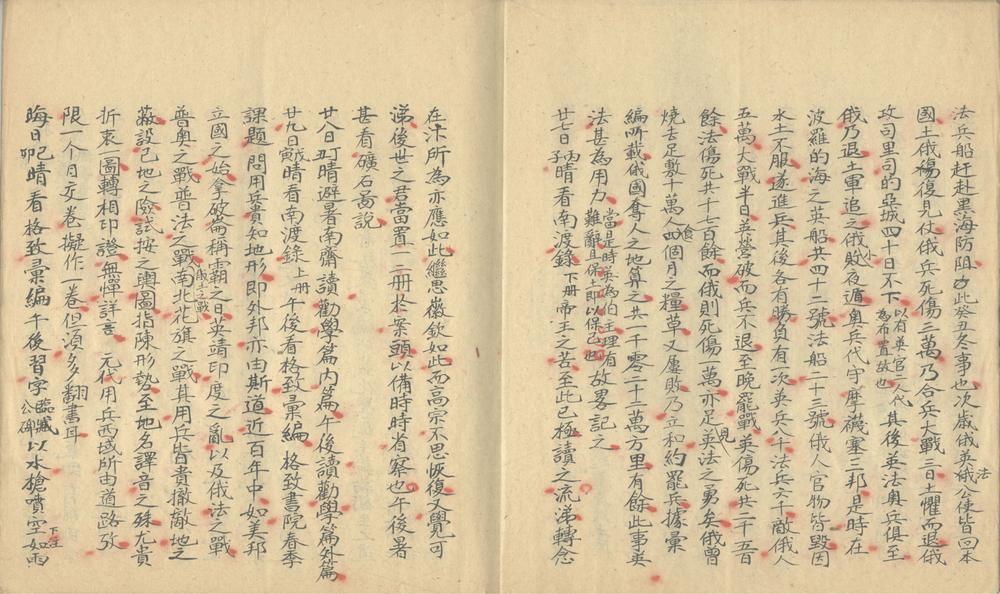 法兵船赶赴黑海防阻此癸丑冬事也次歲俄英俄法公使皆回本
國土俄複復見仗俄兵死傷三萬乃合兵大戰三日土懼而退俄
攻司里司的亞城四十日不下以有英官二人代為布置故也其後英法奧兵俱至
俄乃退土軍追之俄小敗夜遁奧兵代守摩襪塞二邦是時在
波羅的海之英船共四十二號法船二十三號俄人官物皆毀因
水土不服遂進兵其後各有勝負有一次英兵八千法兵六千敵俄人
五萬大戰半日英營破而兵不退至晚罷戰英傷死共二千五百
餘法傷死共十七百餘而俄則死傷一萬亦足見英法之勇矣俄曾
燒去足敷十萬人四個月之糧草又屢敗乃立和約罷兵據彙
編所載俄國奪人之地算之共一千零二十二萬方里有餘此事英
法甚為用力當是時英為伯主理有難辭且保土即以保己也故畧記之
廿七日丙子晴看南渡錄下册帝王之苦至此已極讀之流涕轉念
在汴所為亦應如此繼思徽欽如此而高宗不思恢復又覺可
涕後世之君當置一二册於案頭以備時時省察也午後暑
甚看礦石髙說
廿八日丁丑晴避暑南齋讀勸學篇內篇午後讀勸學篇外篇
廿九日戊寅晴看南渡錄上册午後看格致彙編 格致書院春季
課題 問用兵貴知地形即外邦亦由斯道近百年中如美邦
立國之始拿破崙稱霸之日英靖印度之亂以及俄法之戰
普奧之戰普法之戰俄土之戰南北花旗之戰其用兵皆貴撤敵地之
蔽設己地之險試按之輿圖指陳形勢至地名譯音之殊尤貴
折衷一圖轉相印證無憚詳言 元代用兵西域所由道路攷
限一个月交卷擬作一卷但須多翻書耳
晦日己卯晴看格致彙編午後習字臨臧公碑以水槍噴空如雨下注